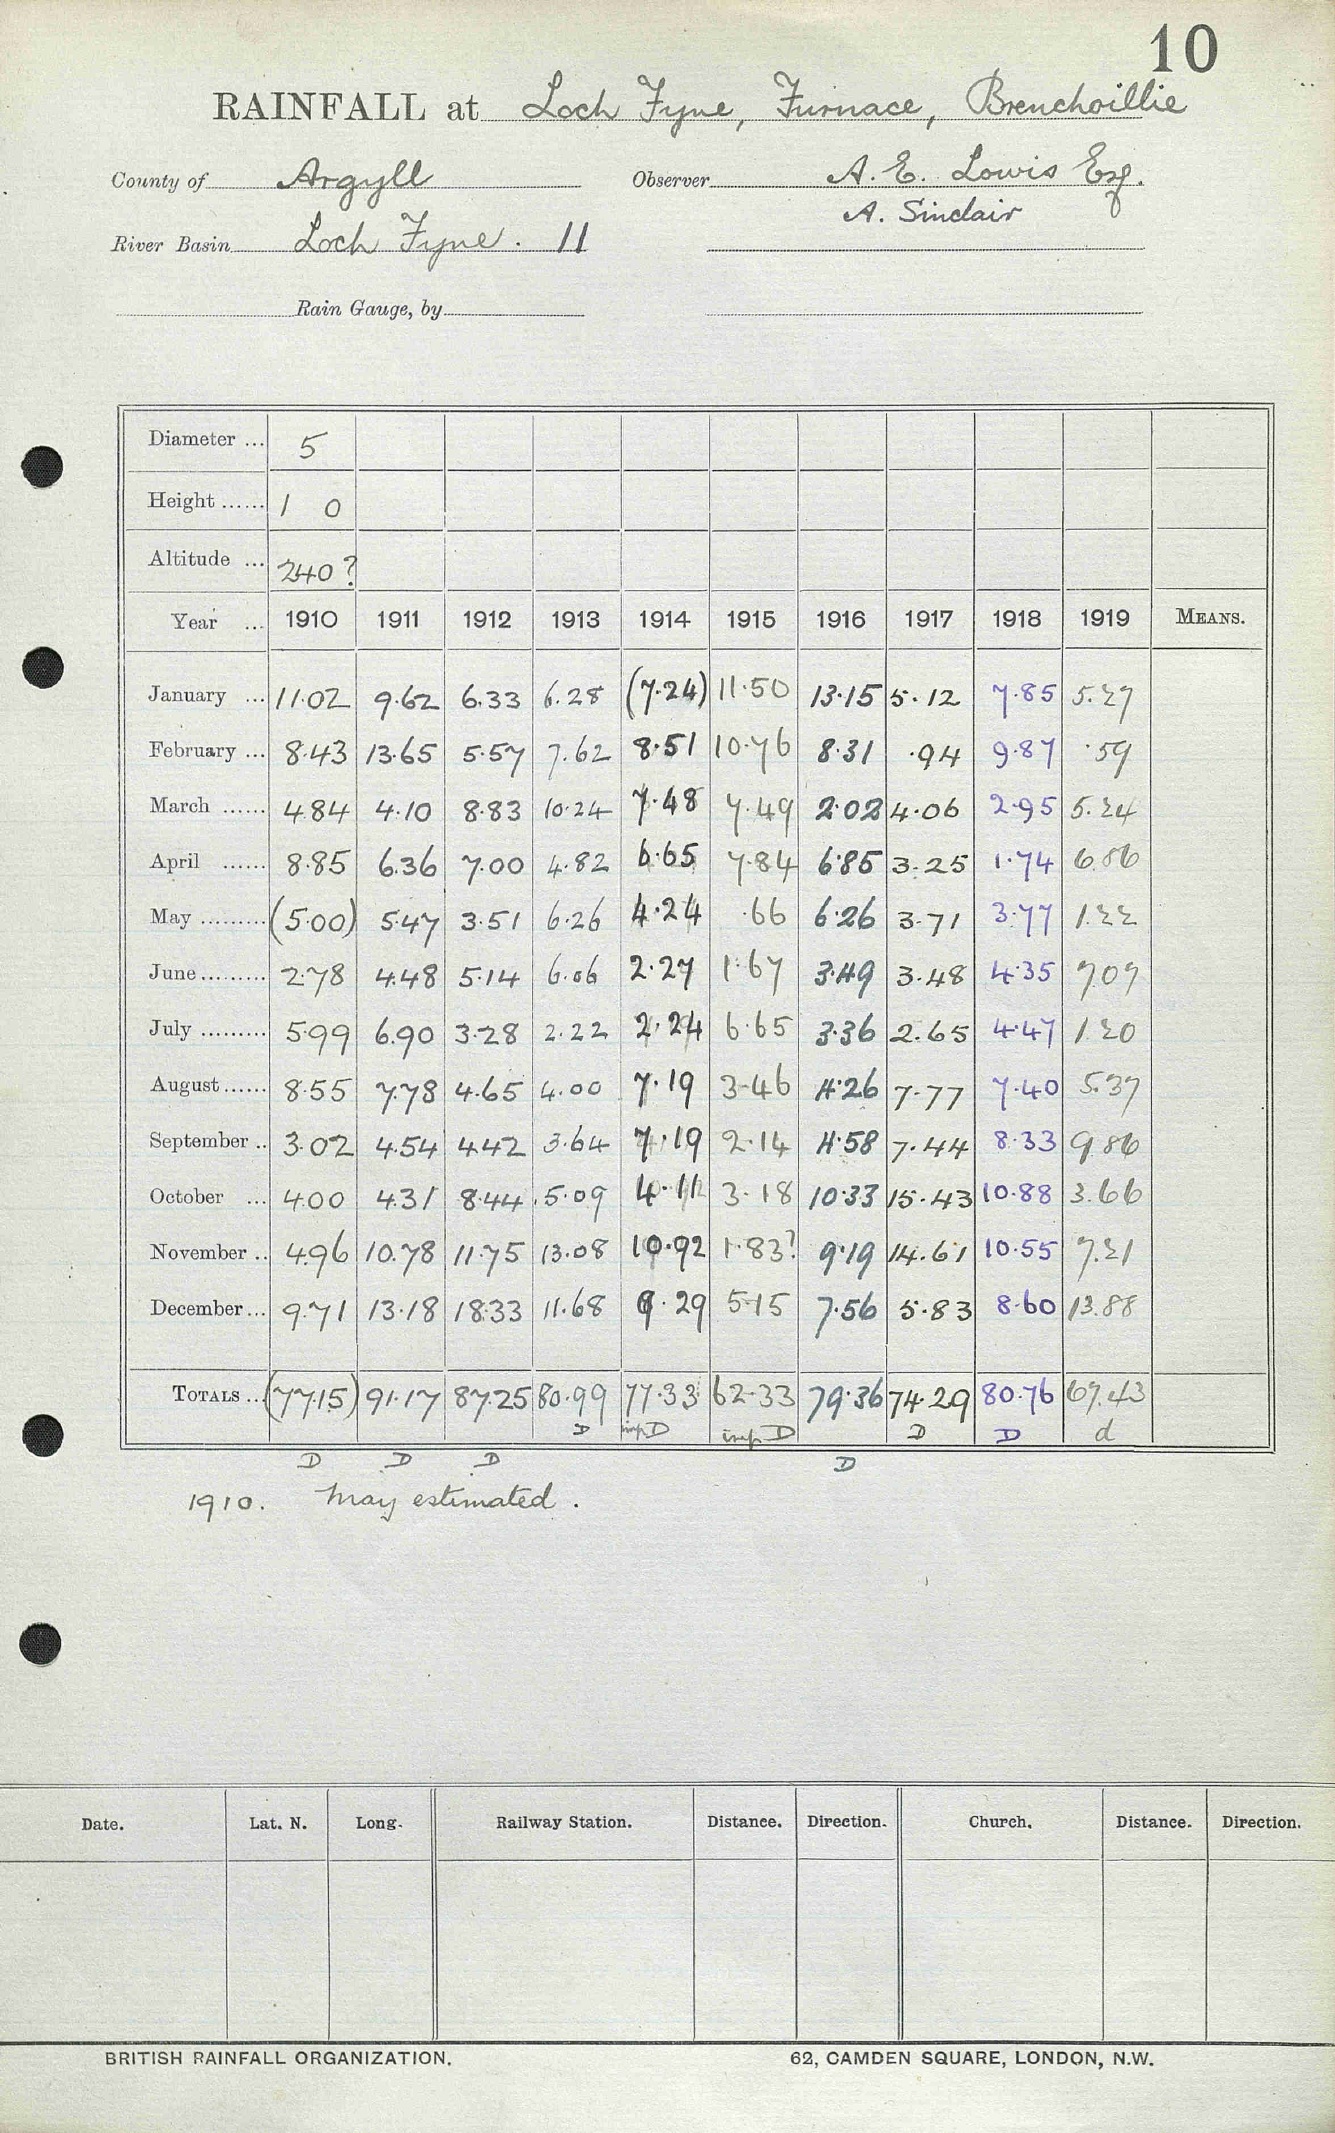 10
RAINFALL at Loch Fyne, Furnace, Brenchoillie
County of Argyll Observer A. E. Lowis Esq.
A. Sinclair
River Basin Loch Fyne. 11
Rain Gauge, by
Diameter ... 5
Height ...... 1 0
Altitude ... 240?
Year ... 1910 1911 1912 1913 1914 1915 1916 1917 1918 1919 MEANS.
January ... 11.02 9.62 6.33 6.28 (7.24) 11.50 13.15 5.12 7.85 5.27
February ... 8.43 13.65 5.57 7.62 8.51 10.76 8.31 .94 9.87 .59
March ...... 4.84 4.10 8.83 10.24 7.48 7.49 2.02 4.06 2.95 5.24
April ...... 8.85 6.36 7.00 4.82 6.65 7.84 6.85 3.25 1.74 6.86
May ......... (5.00) 5.47 3.51 6.26 4.24 .66 6.26 3.71 3.77 1.22
June ......... 2.78 4.48 5.14 6.06 2.27 1.67 3.49 3.48 4.35 7.07
July ......... 5.99 6.90 3.28 2.22 2.24 6.65 3.36 2.65 4.47 1.20
August ...... 8.55 7.78 4.65 4.00 7.19 3.46 4.26 7.77 7.40 5.37
September .. 3.02 4.54 4.42 3.64 7.19 2.14 4.58 7.44 8.33 9.86
October ... 4.00 4.31 8.44 5.09 4.11 3.18 10.33 15.43 10.88 3.66
November .. 4.96 10.78 11.75 13.08 10.92 1.83? 9.19 14.61 10.55 7.21
December ... 9.71 13.18 18.33 11.68 9.29 5.15 7.56 5.83 8.60 13.88
TOTALS ... (77.15) 91.17 87.25 80.99 77.33 62.33 79.36 74.29 80.76 67.43
D imp D imp D D D d
D D D D
1910. May estimated.
Date. Lat. N. Long. Railway Station. Distance. Direction. Church. Distance. Direction.
BRITISH RAINFALL ORGANIZATION. 62, CAMDEN SQUARE, LONDON, N.W.